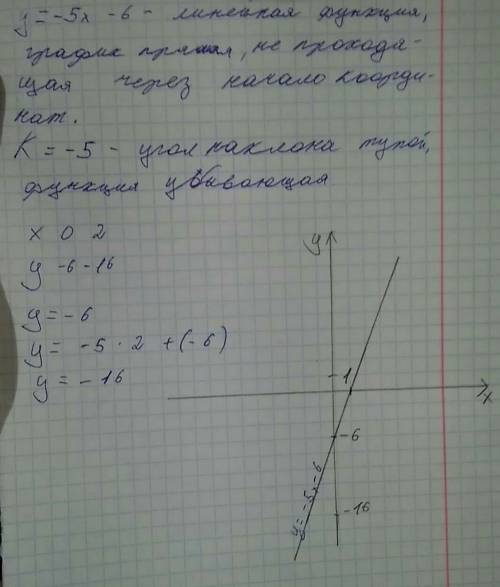 y = -5x - 6 - линейная функция,
график прямая, не проходя-
щая через начало коорди-
нат.
K = -5 - угол наклона тупой,
функция убывающая
x 0 2
y -6 -16
y = -6
y = -5 · 2 + (-6)
y = -16
y
1
x
-6
-16
y = -5x - 6